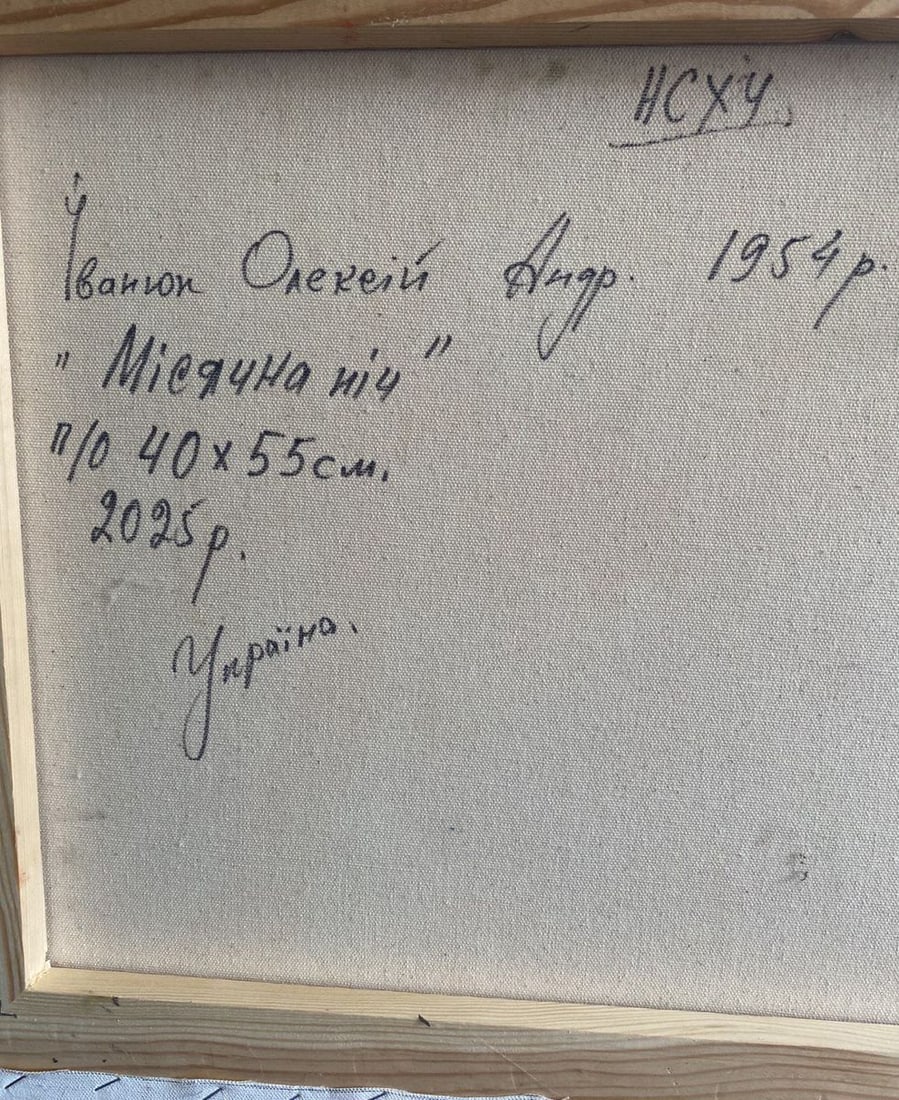 НСХУ.
Іванюк Олексій Андр. 1954 р.
"Місячна ніч"
п/о 40 x 55 см.
2025 р.
Україна.